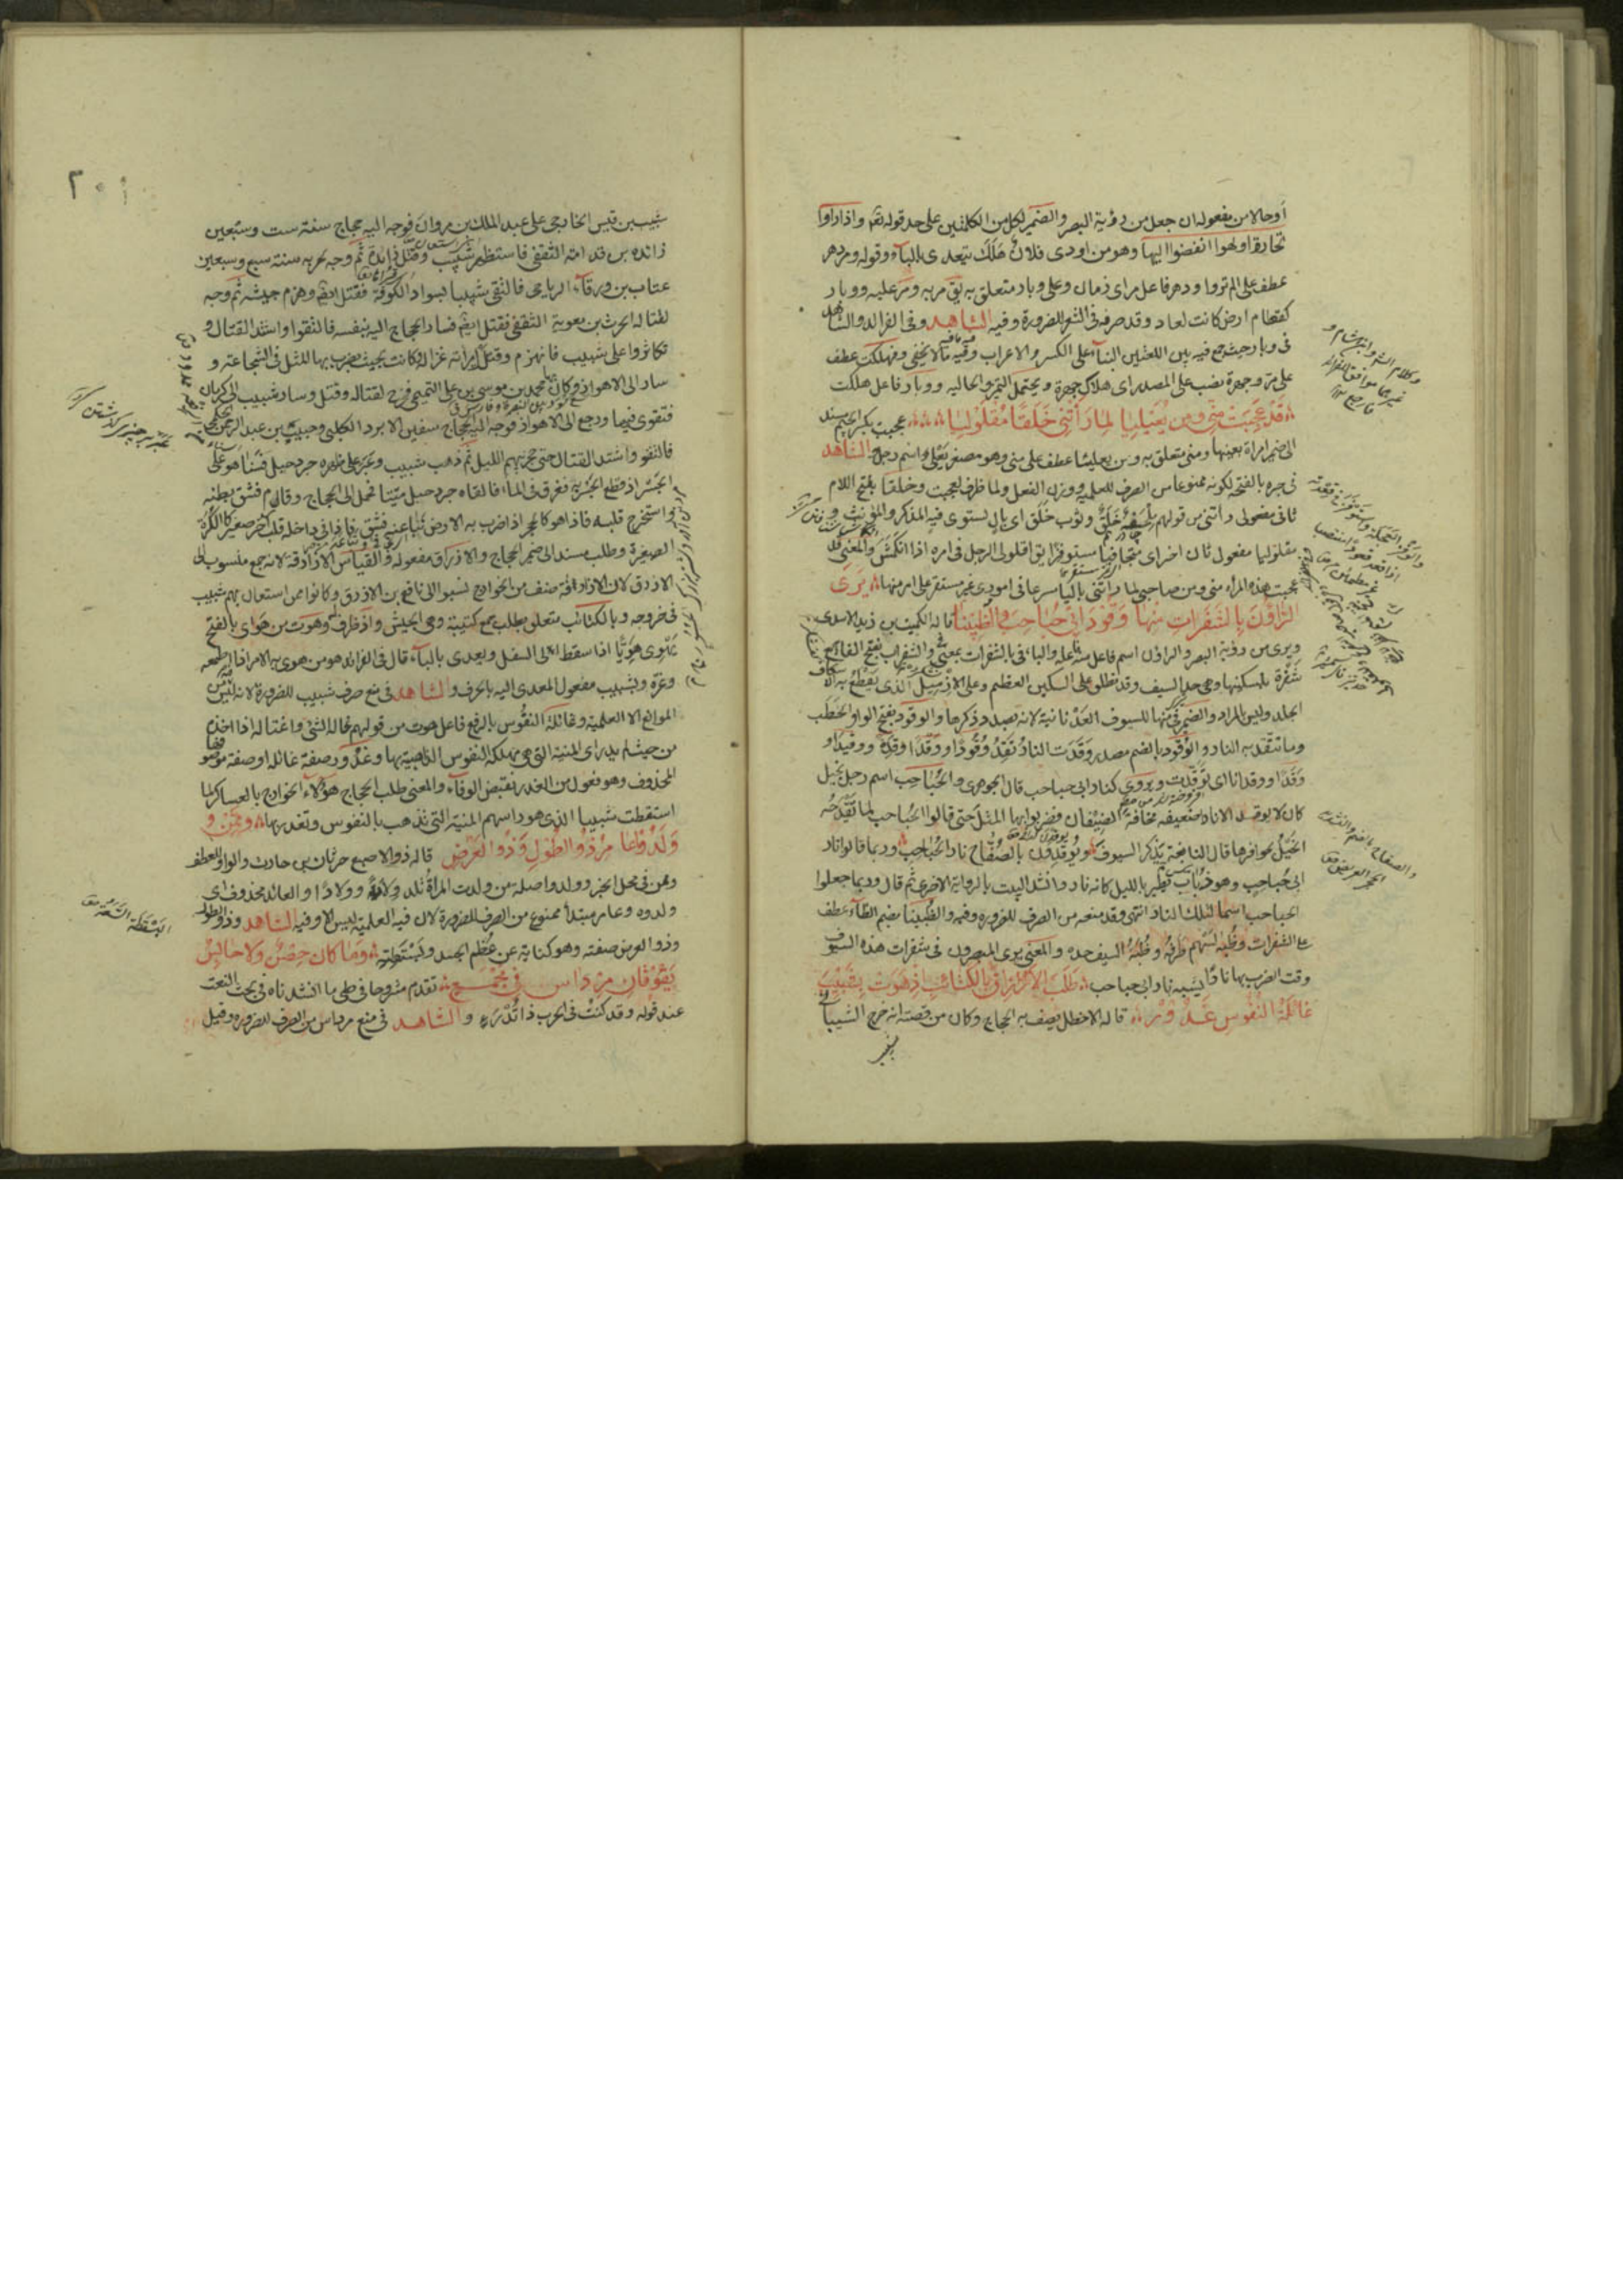 أوحالا من مفعوله ان جعل من رؤية البصر والضمير لكل من الكلمتين على حد قوله تعم واذا رأوا
تجارة اولهوا انفضوا اليها وهو من اودى فلان هَلَكَ يتعدى بالباء وقوله ومر دهر
عطف على الم تروا ودهر فاعل مراى زمان وعلى وبار متعلق به يق مر به ومر عليه ووبار
كقطام ارض كانت لعاد وقد صرفه فى الشعر للضرورة وفيه الشاهد وفى الفرائد والشاهد
فى وبار حيث جمع فيه بين اللغتين البناء على الكسر والاعراب وفيه مالا يخفى وفهلكت عطف
على مر وجهرة نصب على المصدر اى هلاك جهرة ويحتمل التميز والحاليه ووبار فاعل هلكت
قَدْ عَجِبَتْ مِنّى ومِن يُعَيْلِيَا لما رَأَتْنِى خَلَقًا مُقْلَوْلِيَا عجبت بكسر الجيم مسند
الى ضمير امراة بعينها ومنى متعلق به ومن يعيليا عطف على منى وهو مصغر يَعْلى اسم رجل والشاهد
فى جره بالفتحة لكونه ممنوعا من الصرف للعلميه ووزن الفعل ولما ظرف لعجبت وخلقا بفتح اللام
ثانى مفعولى رأتنى من قولهم خَلَقٌ وثوب خَلَق اى بال يستوى فيه المذكر والمؤنث و
مقلوليا مفعول ثان اخر اى متجافيا مستوفزا يق اقلولى الرجل فى امره اذا انكمش والمعنى قد
عجبت هذه المرأه منى ومن صاحبى لما رأتنى باليا مسرعا فى امورى غير مستقر على امر منها يَرَى
الرَّاؤُنَ بِالشَّفَراتِ مِنْها وَقُودَ اَبى حُبَاحِبَ والظُبِينَا قاله الكميت بن زيد الاسدى
ويرى من رؤية البصر والراؤن اسم فاعل منه فاعله والباء فى بالشفرات بمعنى فى والشفرات بفتح الفاء جمع
شَفْرة بسكونها وهى حد السيف وقد تطلق على السكين العظيم وعلى الازميل الذى يَقْطَعُ به الاسكاف
الجلد وليس المراد والضمير فى منها للسيوف لانه بصدد ذكرها والوقود بفتح الواو الحطب
وما تتقد به النار والوُقود بالضم مصدر وَقَدَت النارُ تَقِدُ وُقُودًا ووَقْدًا وقِدَةً ووقيدًا و
وَقَدًا ووقدانا اى تَوَقَّدت ويروى كنار ابى حباحب قال الجوهرى والحُبَاحِب اسم رجل بخيل
كان لا يوقد الا نارا ضعيفه مخافة الضيفان فضربوا بها المثل حتى قالوا الحُباحب لما تَقْدَحُه
الخَيْلُ بحوافرها قال النابغة يذكر السيوف ويُوقِدْنَ بالصُفّاح نار الحُباحِب وربما قالوا نار
ابى حُباحِب وهو ذُباب يَطير بالليل كانه نار وانشد البيت بالرواية الاخرى ثم قال وربما جعلوا
الحباحب اسما لتلك النار انتهى وقد منعه من الصرف للضرورة وفيه والظُبِينَا بضم الظاء عطف
على الشفرات وظُبَة السَهم طَرَفُه وظُبَةُ السيف حده والمعنى يرى المبصرون فى شفرات هذه السيوف
وقت الضرب بها نارًا يشبه نار ابى حباحب طَلَبَ الاَزارِقَ بِالكَتائِبِ اِذهَوَت بِشَبِيبَ
غائِلَةُ النُّفُوسِ غَدُورُ قاله الاخطل يصف به الحجاج وكان من قصته انه خرج الشيبانى
٢٠١
شبيب بن قيس الخارجى على عبد الملك بن مروان فوجه اليه حجاج سنة ست وسبعين
زائدة بن قدامة الثقفى فاستظهر شبيب وقتل زايدة ثم وجه لحربه سنة سبع وسبعين
عتاب بن ورقاء الرياحى فالتقى شبيبا بسواد الكوفة فقتل ايضم وهزم جيشه ثم وجه
لقتاله الحرث بن معوية الثقفى فقتل ايضم فسار الحجاج اليه بنفسه فالتقوا واشتد القتال و
تكاثروا على شبيب فانهزم وقتل امرأته غزالة وكانت بحيث يضرب بها المثل فى الشجاعة و
سار الى الاهواز وكان بها محمد بن موسى بن على التميمى فخرج لقتاله وقتل وسار شبيب الى كرمان
فتقوى فيها ورجع الى الاهواز فوجه اليه الحجاج سفين الابرد الكلبى وحبيب بن عبد الرحمن
فالتقوا واشتد القتال حتى حجز بينهم الليل ثم ذهب شبيب وعبر على ظهره جرد حيل فبينا هو على
الجَسْر اذ قطع الجَسْر به فغرق فى الماء فالقاه جرد حيل ميتا فحمل الى الحجاج وقال فشق بطنه
واستخرج قلبه فاذا هو كالحجر اذا ضرب به الارض نبا عنه فشق فاذا فى داخله قلب اخر صغير كالكُرَة
الصغيرة وطلب مسند الى ضمير الحجاج والازارق مفعوله والقياس الازارقة لانه جمع منسوب الى
الازرق لان الازارقة صنف من الخوارج نسبوا الى نافع بن الازرق وكانوا ممن استعان بهم شبيب
فى خروجه وبالكتائب متعلق بطلب جمع كتيبة وهى الجيش واذ ظرف وهوت من هَوَاى بالفتح
يَهْوِى هَوِيًّا اذا سقط الى السفل ويعدى بالباء قال فى الفرائد هو من هوى به الامر اذا اطمعه
وغره وبشبيب مفعول المعدى اليه بالحرف والشاهد فى منع صرف شبيب للضرورة لانه ليس فيه من
الموانع الا العلمية وغائلة النفوس بالرفع فاعل هوت من قولهم غاله الشئ واغتاله اذا اخذه
من حيث لم يدر اى المنية التى هى مهلكة النفوس الذاهبة بها وغَدُور صفة غائله او صفة موصوفها
المحذوف وهو فعول من الغدر نقيض الوفاء والمعنى طلب الحجاج هؤلاء الخوارج بالعساكر لما
استقطت شبيبا الذى هو راسهم المنية التى تذهب بالنفوس وتغدر بها ومِمَّن وَ
وَلَدُوا عامِرُ ذُو الطُولِ وَذُو العَرْضِ قاله ذو الاصبع حرثان بن حارث والواو للعطف
وممن فى محل الخبر وولدوا صلة من ولدت المرأةُ تلد وِلادةً وولادًا والعائد محذوف اى
ولدوه وعامر مبتدأ ممنوع من الصرف للضرورة لان فيه العلمية ليس الا وفيه الشاهد وذو الطول
وذو العرض صفته وهو كناية عن عُظْم الجسد وبَسْطته وَما كان حِصْنٌ ولا حابِسٌ
يَفُوقانِ مِرْداسَ فى مَجْمَعِ تقدم مشروحا فى طى ما انشدناه فى بحث النعت
عند قوله وقد كنتُ فى الحرب ذا تُدْرَءٍ والشاهد فى منع مرداس من الصرف للضرورة وقيل